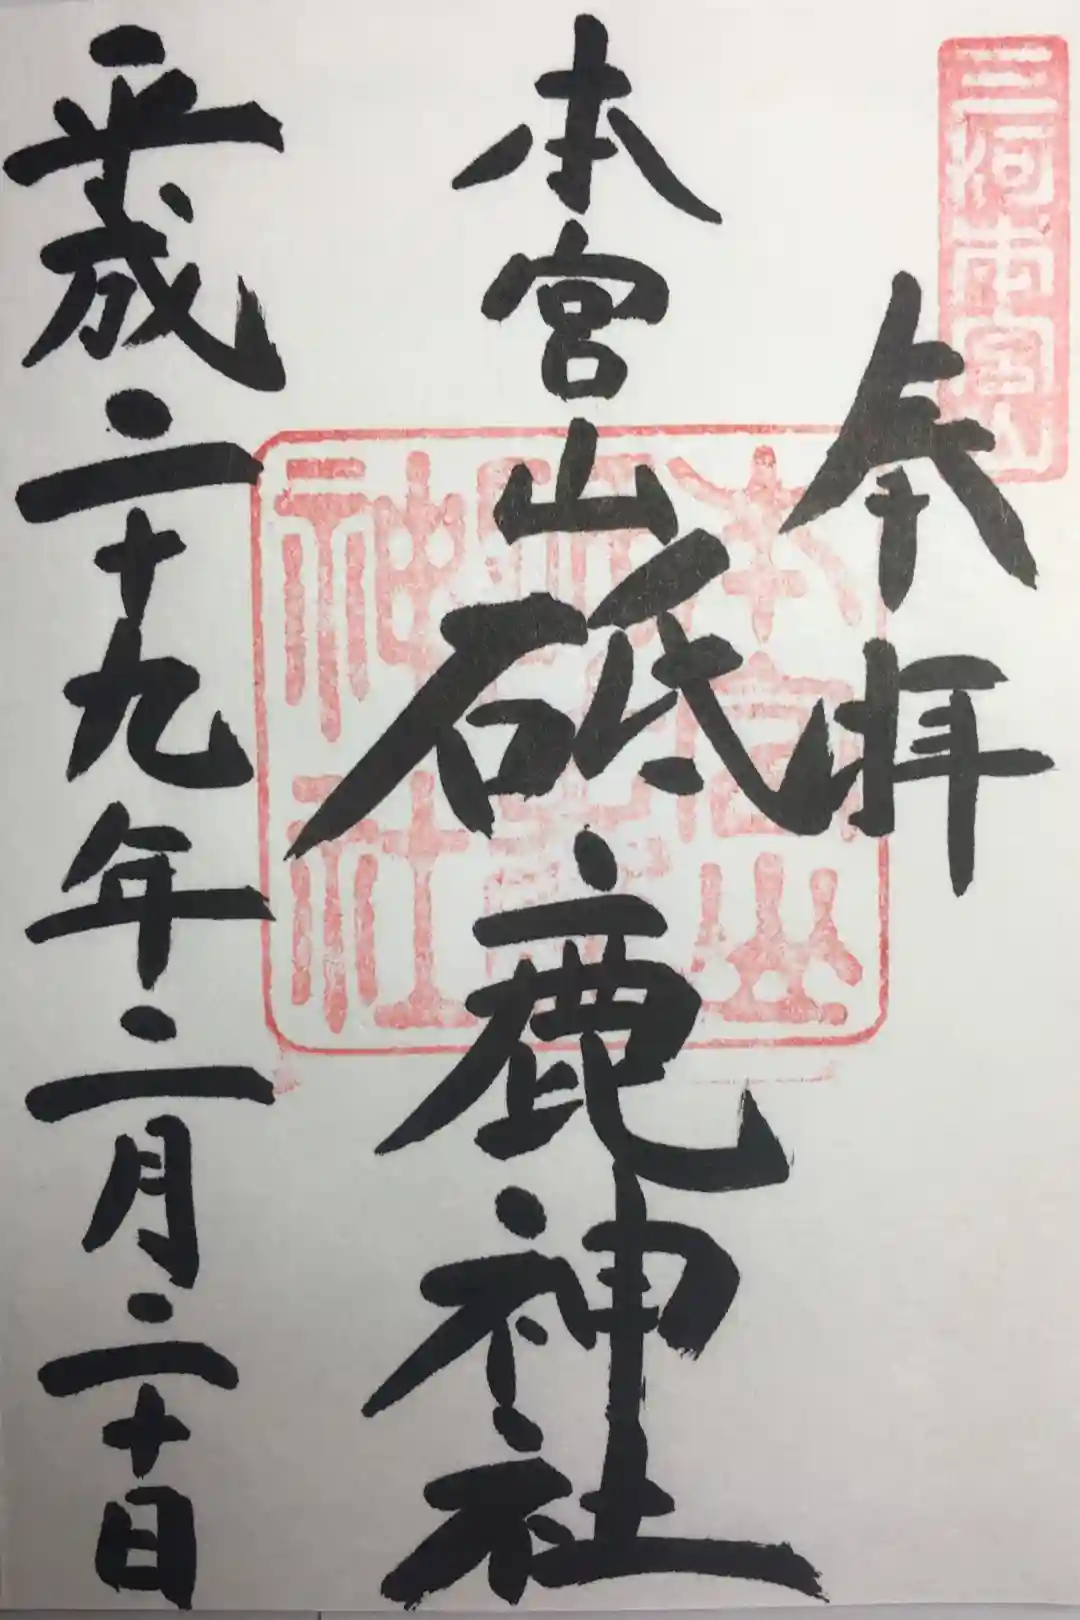 三河本宮山
奉拝
本宮山砥鹿神社
平成二十九年二月二十日